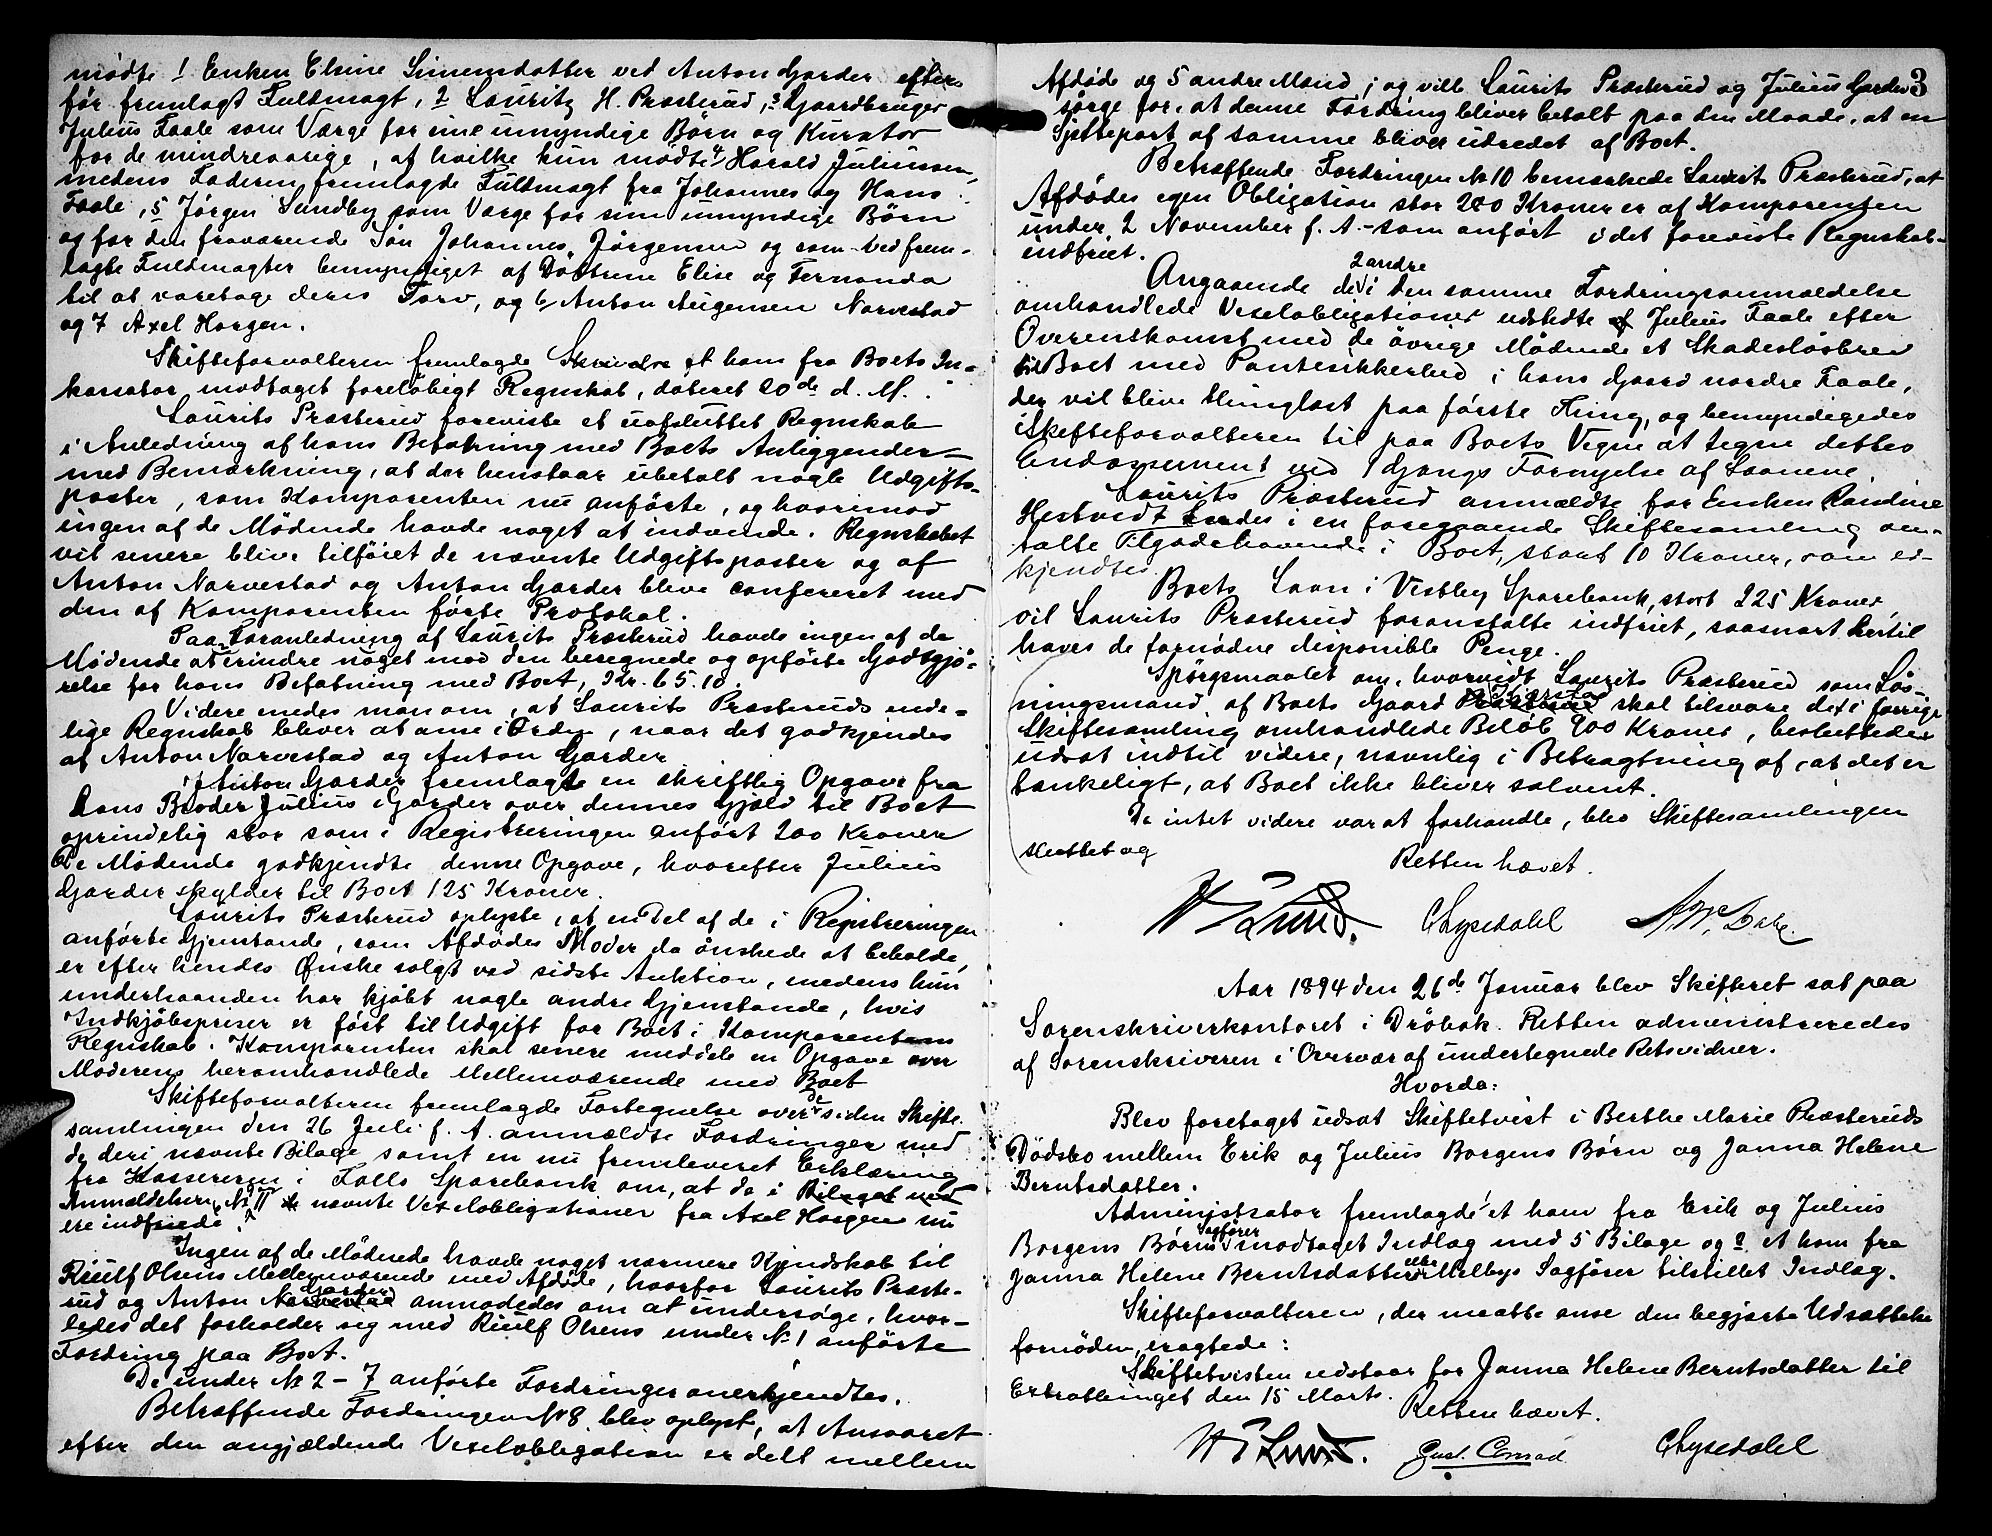 mødte 1 Enken Elsine Simensdatter ved Anton Garder efter
før fremlagt Fuldmagt, 2 Lauritz H. Præsterud, 3 Gaardbruger
Julius Faale som Værge for sine umyndige Børn og Kurator
for de mindreaarige, af hvilke kun mødte 4 Harald Juliussen,
medens Faderen fremlagde Fuldmagt fra Johannes og Hans
Faale, 5 Jørgen Sundby som Værge for sine umyndige Børn
og for den fraværende Søn Johannes Jørgensen og som ved frem-
lagte Fuldmagter bemyndiget af Døttrene Elise og Fernanda
til at varetage deres Tarv, og 6 Anton Augensen Narvestad
og 7 Axel Horgen.
Skifteforvalteren fremlagde et ham fra Boets In-
kassator modtaget foreløbigt Regnskab, dateret 20de d. M.
Laurits Præsterud foreviste et uafsluttet Regnskab
i Anledning af hans Befatning med Boets Anliggender
med Bemærkning, at der henstaar ubetalt nogle Udgifts-
poster, som Komparenten nu anførte, og hvorimod
ingen af de Mødende havde noget at indvende. Regnskabet
vil senere blive tilføiet de nævnte Udgiftsposter og af
Anton Narvestad og Anton Garder blive confereret med
den af Komparenten førte Protokol.
Paa Foranledning af Laurits Præsterud havde ingen af de
Mødende at erindre noget mod den beregnede og opførte Godtgjø-
relse for hans Befatning med Boet, Kr. 65.10.
Videre enedes man om, at Laurits Præsteruds ende-
lige Regnskab bliver at anse i Orden, naar det godkjendes
af Anton Narvestad og Anton Garder
Anton Garder fremlagde en skriftlig Opgave fra
hans Broder Julius Garder over dennes Gjæld til Boet
oprindelig stor som i Registreringen anført 200 Kroner
De Mødende godkjendte denne Opgave, hvorefter Julius
Garder skylder til Boet 125 Kroner.
Laurits Præsterud oplyste, at en Del af de i Registreringen
anførte Gjenstande, som Afdødes Moder da ønskede at beholde,
er efter hendes Ønske solgt ved sidste Auktion, medens hun
underhaanden har kjøbt nogle andre Gjenstande, hvis
Indkjøbspriser er ført til Udgift for Boet i Komparentens
Regnskab. Komparenten skal senere meddele en Opgave over
Moderens heromhandlede Mellemværende med Boet
Skifteforvalteren fremlagde Fortegnelse over de siden Skifte-
samlingen den 26 Juli f. A. anmeldte Fordringer med
de deri nævnte Bilage samt en nu fremleveret Erklæring
fra Kassereren i Follo Sparebank om, at de i Bilaget ved
Anmeldelsen No II nævnte Vexelobligationer fra Axel Horgen nu
ere indfriede.
Ingen af de Mødende havde noget nærmere Kjendskab til
Riulf Olsens Mellemværende med Afdøde, hvorfor Laurits Præste-
rud og Anton Garder anmodedes om at undersøge, hvor-
ledes det forholder sig med Riulf Olsens under No 1 anførte
Fordring paa Boet.
De under No 2 – 7 anførte Fordringer anerkjendtes.
Betræffende Fordringen No 8 blev oplyst, at Ansvaret
efter den angjældende Vexelobligation er delt mellem
3
Afdøde og 5 andre Mænd; og vil Laurits Præsterud og Julius Garder
sørge for, at denne Fordring bliver betalt paa den Maade, at en
Sjettepart af samme bliver udredet af Boet.
Betræffende Fordringen No 10 bemærkede Laurits Præsterud, at
Afdødes egen Obligation stor 200 Kroner er af Komparenten
under 2 November f. A. – som anført i det foreviste Regnskab –
indfriet.
Angaaende de 2 andre i den samme Fordringsanmældelse
omhandlede Vexelobligationer udstedte Julius Faale efter
Overenskomst med de øvrige Mødende et Skadesløsbrev
til Boet med Pantesikkerhed i hans Gaard nordre Faale,
der vil blive thinglæst paa første Thing, og bemyndigedes
Skifteforvalteren til paa Boets Vegne at tegne dettes
Endossement ved 1 Gangs Fornyelse af Laanene
Laurits Præsterud anmældte for Enken Randine
Hestvedt hendes i en foregaaende Skiftesamling om-
talte Tilgodehavende i Boet, stort 10 Kroner, som er-
kjendtes
Boets Laan i Vestby Sparebank, stort 225 Kroner,
vil Laurits Præsterud foranstalte indfriet, saasnart hertil
haves de fornødne disponible Penge.
Spørgsmaalet om, hvorvidt Laurits Præsterud som Løs-
ningsmand af Boets Gaard skal tilsvare det i forrige
Skiftesamling omhandlede Beløb 900 Kroner, besluttedes
udsat indtil videre, navnlig i Betragtning af, at det er
tænkeligt, at Boet ikke bliver solvent.
Da intet videre var at forhandle, blev Skiftesamlingen
sluttet og
Retten hævet.
Lund. CLysedahl
Aar 1894 den 26de Januar blev Skifteret sat paa
Sorenskriverkontoret i Drøbak. Retten administreredes
af Sorenskriveren i Overvær af undertegnede Retsvidner.
Hvorda:
Blev foretaget udsat Skiftetvist i Berthe Marie Præsteruds
Dødsbo mellem Erik og Julius Borgens Børn og Janna Helene
Berntsdatter.
Administrator fremlagde 1 et ham fra Erik og Julius
Borgens Børns Sagfører modtaget Indlæg med 5 Bilage og 2 et ham fra
Janna Helene Berntsdatter Melbys Sagfører tilstillet Indlæg.
Skifteforvalteren, der maatte anse den begjærte Udsættelse
fornøden, eragtede:
Skiftetvisten udstaar for Janna Helene Berntsdatter til
Extrathinget den 15 Marts.
Retten hævet.
Lund. Gust. Conrad CLysedahl